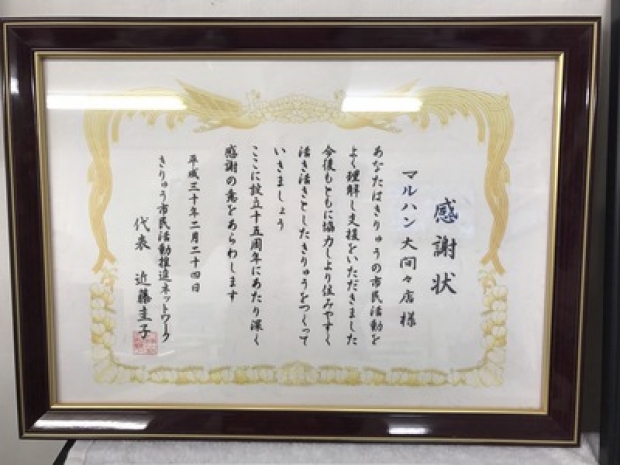 感謝状
マルハン 大間々店 様
あなたはきりゅうの市民活動を
よく理解し支援をいただきました
今後もともに協力しより住みやすく
活き活きとしたきりゅうをつくって
いきましょう
ここに設立十五周年にあたり深く
感謝の意をあらわします
平成三十年二月二十四日
きりゅう市民活動推進ネットワーク
代表 近藤圭子